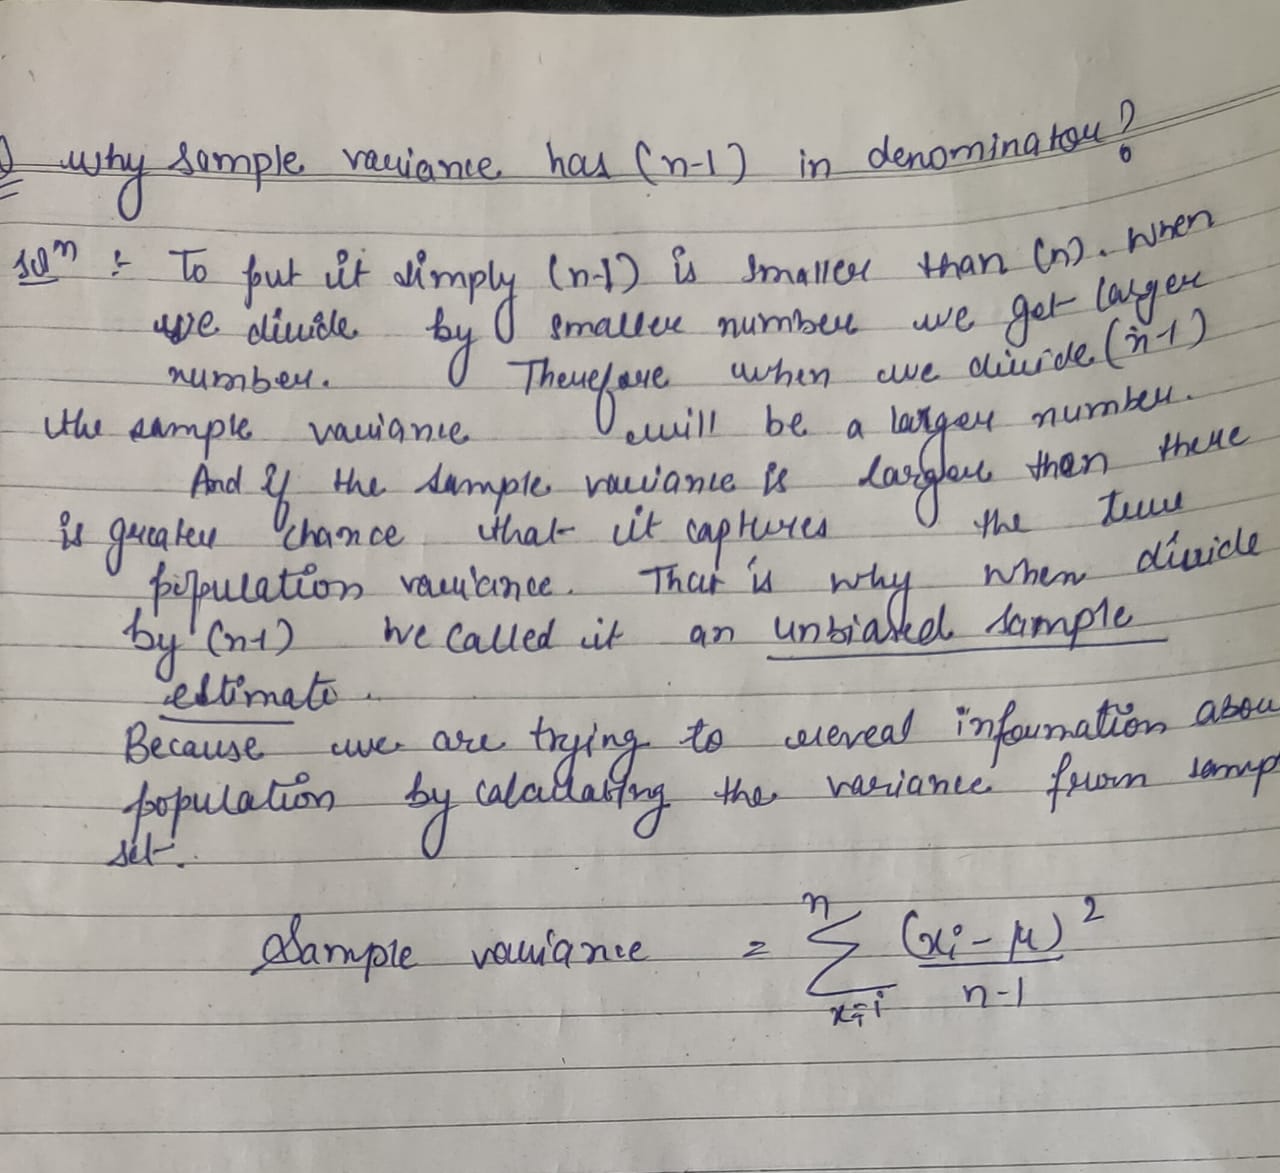 Why sample variance has (n-1) in denominator?
Solⁿ :- To put it simply (n-1) is smaller than (n). When
we divide by smaller number we get larger
number. Therefore when we divide (n-1)
the sample variance will be a larger number.
And if the sample variance is larger then there
is greater chance that it captures the true
population variance. That is why when divide
by (n-1) we called it an unbiased sample
estimate.
Because we are trying to reveal information abou
population by calculating the variance from samp
set.
Sample variance = n∑x=i (xi - μ)² / n-1